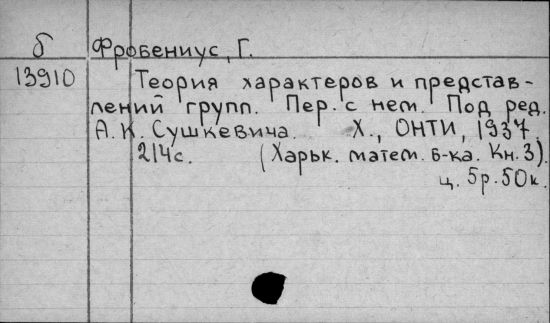 б Фробениус, Г.
13910 Теория характеров и представ-
лений групп. Пер. с нем. Под ред.
А.К. Сушкевича. Х., ОНТИ, 1937.
214с. (Харьк. матем. б-ка. Кн. 3).
ц. 5р. 50к.